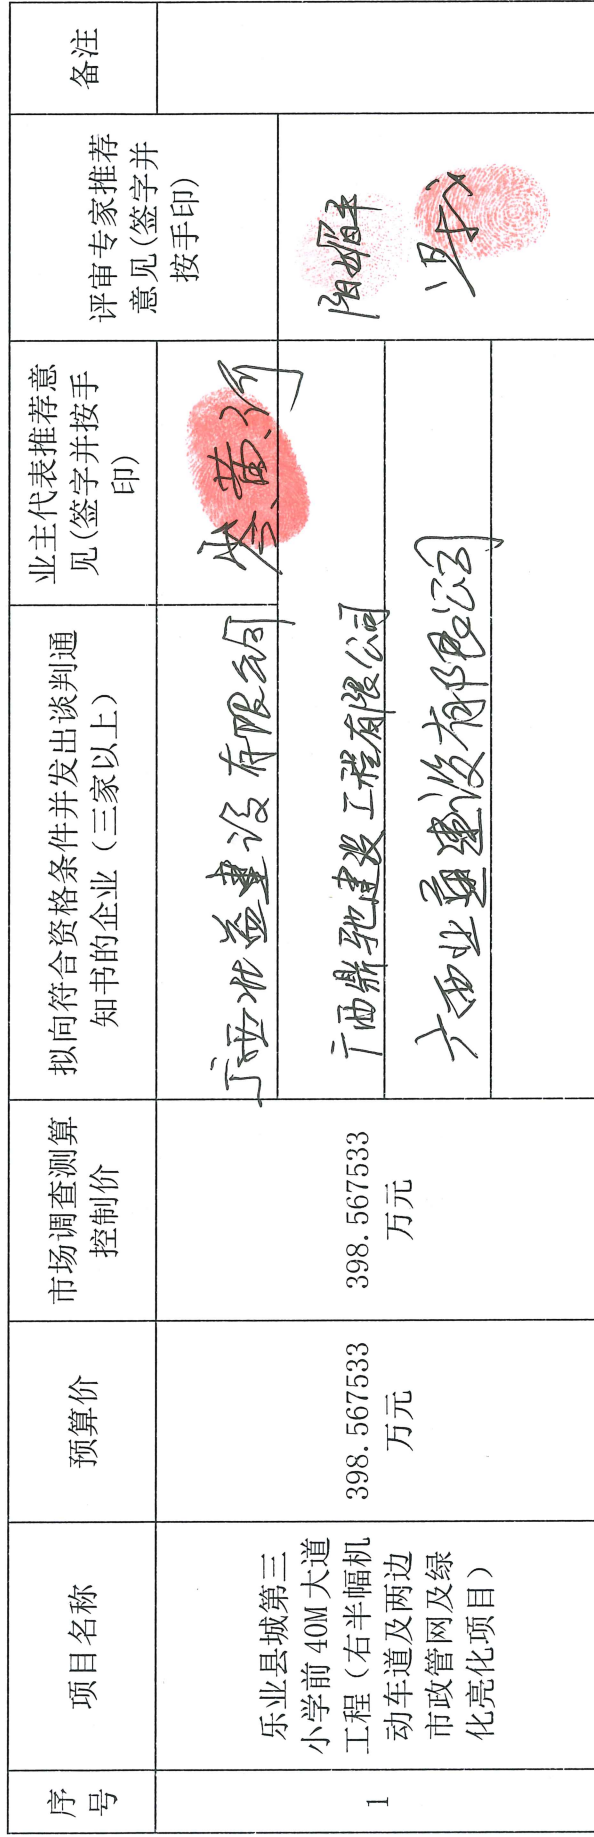 序
号
项目名称
预算价
市场调查测算
控制价
拟向符合资格条件并发出谈判通
知书的企业（三家以上）
业主代表推荐意
见(签字并按手
印)
评审专家推荐
意见(签字并
按手印)
备注
1
乐业县城第三
小学前 40M 大道
工程（右半幅机
动车道及两边
市政管网及绿
化亮化项目）
398.567533
万元
398.567533
万元
建设有限公司
广西鼎驰建设工程有限公司
广西业通建设有限公司